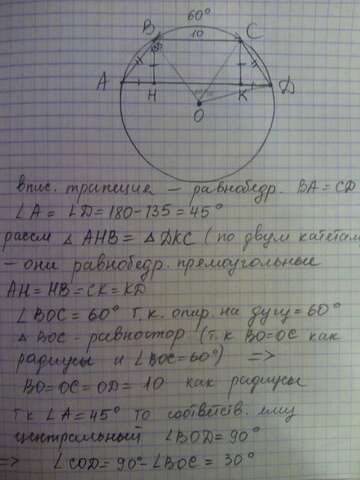 60°
B 10 C
A H K D
O
впис. трапеция – равнобедр. BA = CD
∠A = ∠D = 180 - 135 = 45°
рассм △ AHB = △ DKC (по двум катетам
- они равнобедр. прямоугольные
AH = HB = CK = KD
∠BOC = 60° т.к. опир. на дугу = 60°
△ BOC - равностор (т.к BO = OC как
радиусы и ∠BOC = 60°) ⇒
BO = OC = OD = 10 как радиусы
т к ∠A = 45° то соответств. ему
центральный ∠BOD = 90°
⇒ ∠COD = 90° - ∠BOC = 30°